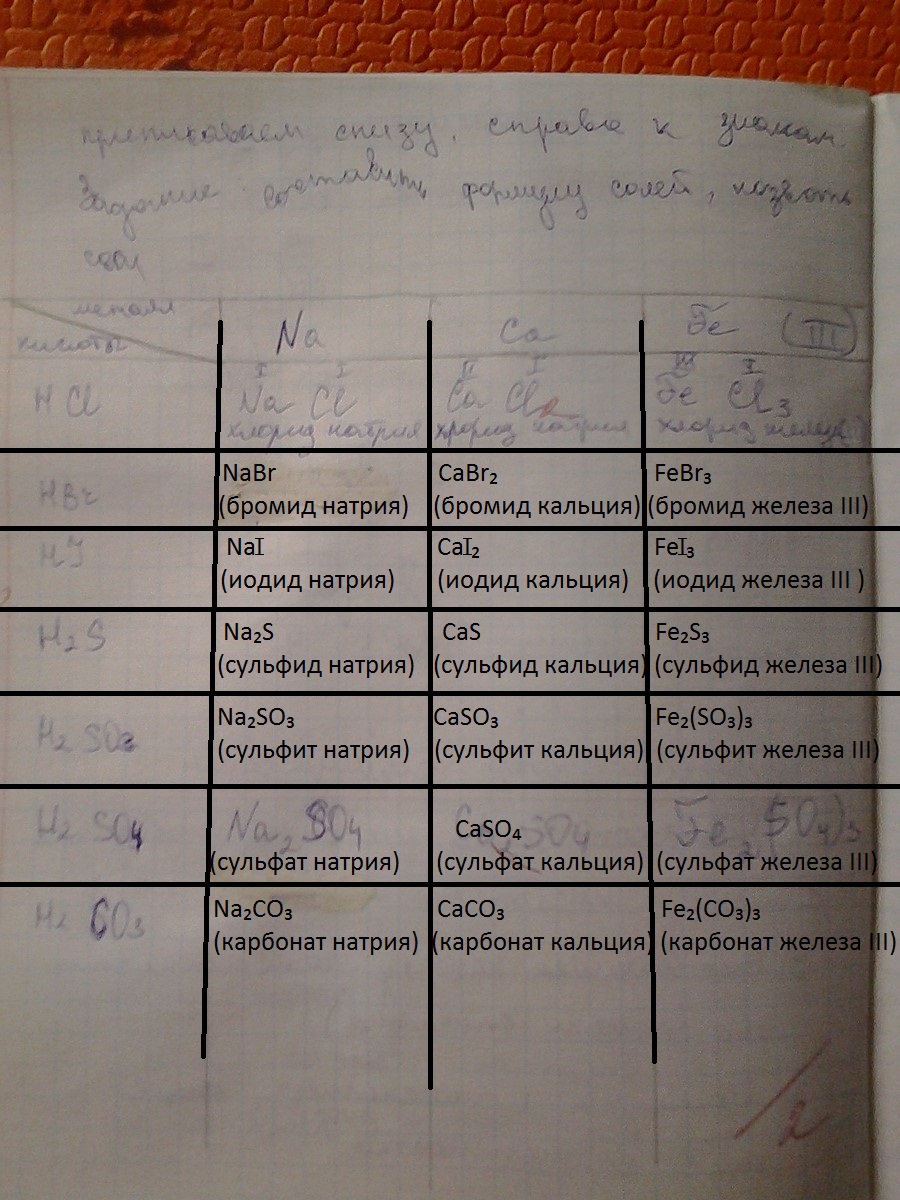 снизу, справа к знакам
Задание: составить формулу солей, назвать
соли
металл
кислоты
Na
Ca
Fe (III)
HCl
I I
Na Cl
хлорид натрия
II I
Ca Cl₂
хлорид натрия
III I
Fe Cl₃
хлорид железа
HBr
NaBr
(бромид натрия)
CaBr₂
(бромид кальция)
FeBr₃
(бромид железа III)
HJ
NaI
(иодид натрия)
CaI₂
(иодид кальция)
FeI₃
(иодид железа III )
H₂S
Na₂S
(сульфид натрия)
CaS
(сульфид кальция)
Fe₂S₃
(сульфид железа III)
H₂SO₃
Na₂SO₃
(сульфит натрия)
CaSO₃
(сульфит кальция)
Fe₂(SO₃)₃
(сульфит железа III)
H₂SO₄
Na₂SO₄
(сульфат натрия)
CaSO₄
(сульфат кальция)
Fe₂(SO₄)₃
(сульфат железа III)
H₂CO₃
Na₂CO₃
(карбонат натрия)
CaCO₃
(карбонат кальция)
Fe₂(CO₃)₃
(карбонат железа III)